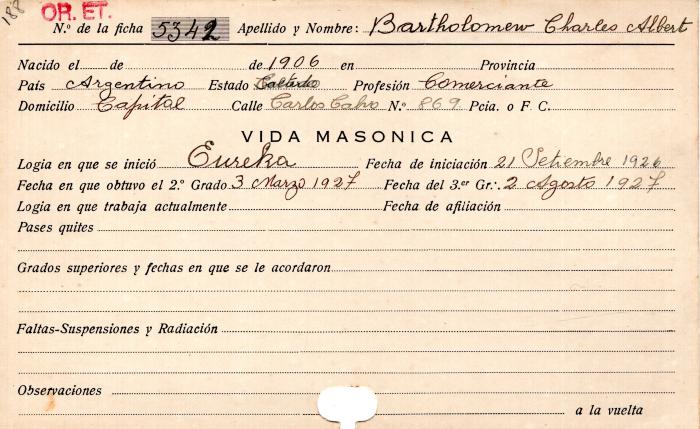 188 OR. ET.
N.º de la ficha 5342 Apellido y Nombre: Bartholomew Charles Albert
Nacido el de de 1906 en Provincia
País Argentino Estado Profesión Comerciante
Domicilio Capital Calle Carlos Calvo N.º 869 Pcia. o F. C.
VIDA MASONICA
Logia en que se inició Eureka Fecha de iniciación 21 Setiembre 1926
Fecha en que obtuvo el 2.º Grado 3 Marzo 1927 Fecha del 3.er Gr.: 2 Agosto 1927
Logia en que trabaja actualmente Fecha de afiliación
Pases quites
Grados superiores y fechas en que se le acordaron
Faltas-Suspensiones y Radiación
Observaciones
a la vuelta